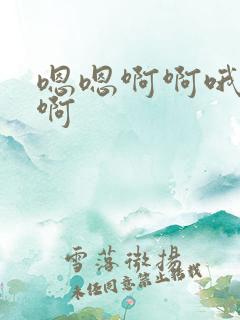 嗯嗯啊啊哦
啊
雪落微揚
未经同意禁止转载